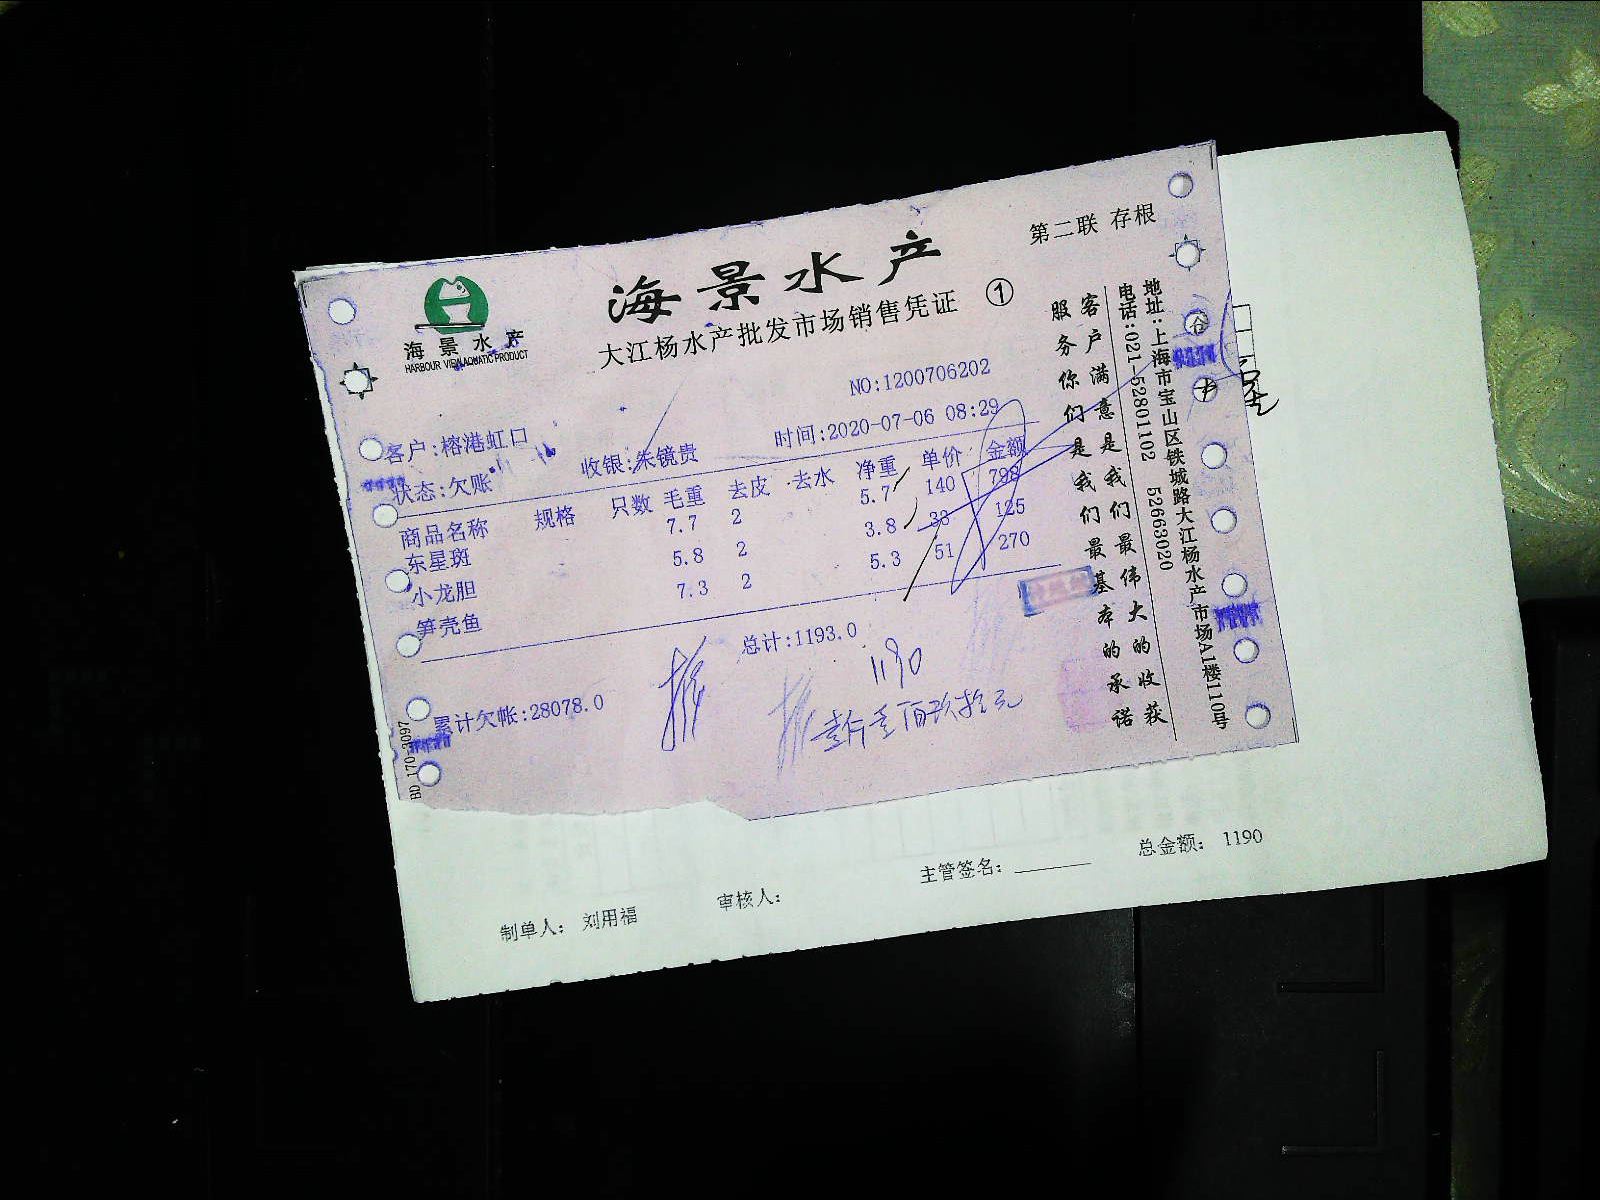 第二联 存根
海景水产
海景水产
HARBOUR VIEW AQUATIC PRODUCT
大江杨水产批发市场销售凭证 ①
NO:1200706202
客户:榕港虹口
收银:朱镜贵
时间:2020-07-06 08:29
状态:欠账
商品名称 规格 只数 毛重 去皮 去水 净重 单价 金额
东星斑 7.7 2 5.7 140 798
小龙胆 5.8 2 3.8 33 125
笋壳鱼 7.3 2 5.3 51 270
总计:1193.0
1190
累计欠帐:28078.0
壹仟壹佰玖拾元
客户满意是我们最伟大的收获
服务你们是我们最基本的承诺
地址:上海市宝山区铁城路大江杨水产市场A1楼110号
电话:021-52801102 52663020
BD 170-3097
制单人: 刘用福
审核人:
主管签名:
总金额: 1190